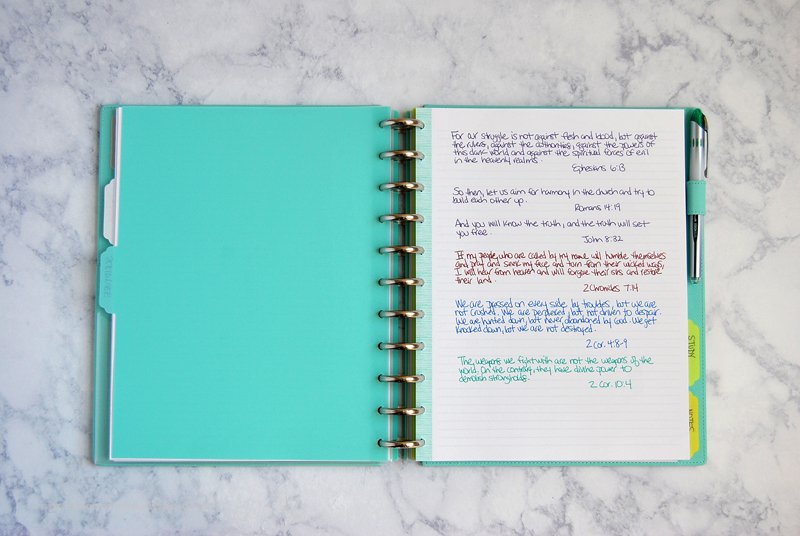 For our struggle is not against flesh and blood, but against
the rulers, against the authorities, against the powers of
this dark world and against the spiritual forces of evil
in the heavenly realms.
Ephesians 6:13
So then, let us aim for harmony in the church and try to
build each other up.
Romans 14:19
And you will know the truth, and the truth will set
you free.
John 8:32
If my people, who are called by my name will humble themselves
and pray and seek my face and turn from their wicked ways,
I will hear from heaven and will forgive their sins and restore
their land.
2 Chronicles 7:14
We are pressed on every side by troubles, but we are
not crushed. We are perplexed, but not driven to despair.
We are hunted down, but never abandoned by God. We get
knocked down, but we are not destroyed.
2 Cor. 4:8-9
The weapons we fight with are not the weapons of the
world. On the contrary, they have divine power to
demolish strongholds.
2 Cor. 10:4
STUDY